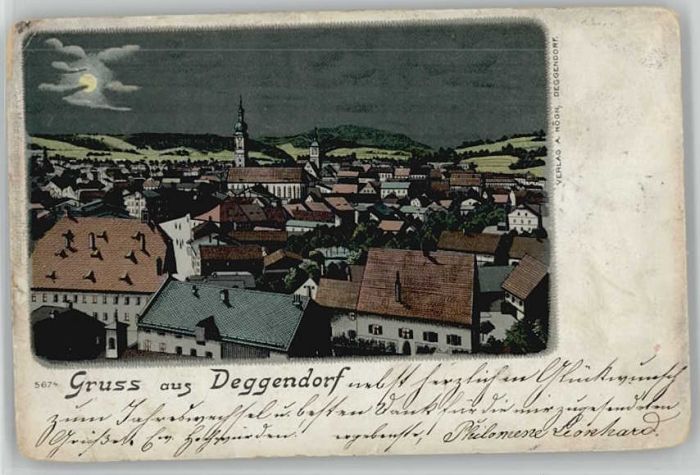 VERLAG A. HÖGN, DEGGENDORF.
5674
Gruss aus Deggendorf nebst herzlichen Glückwunsch
zum Jahreswechsel u. besten Dank für die mir zugesendeten
Grüße. Ew. Hochwürden. ergebenste, Philomena Leonhard.